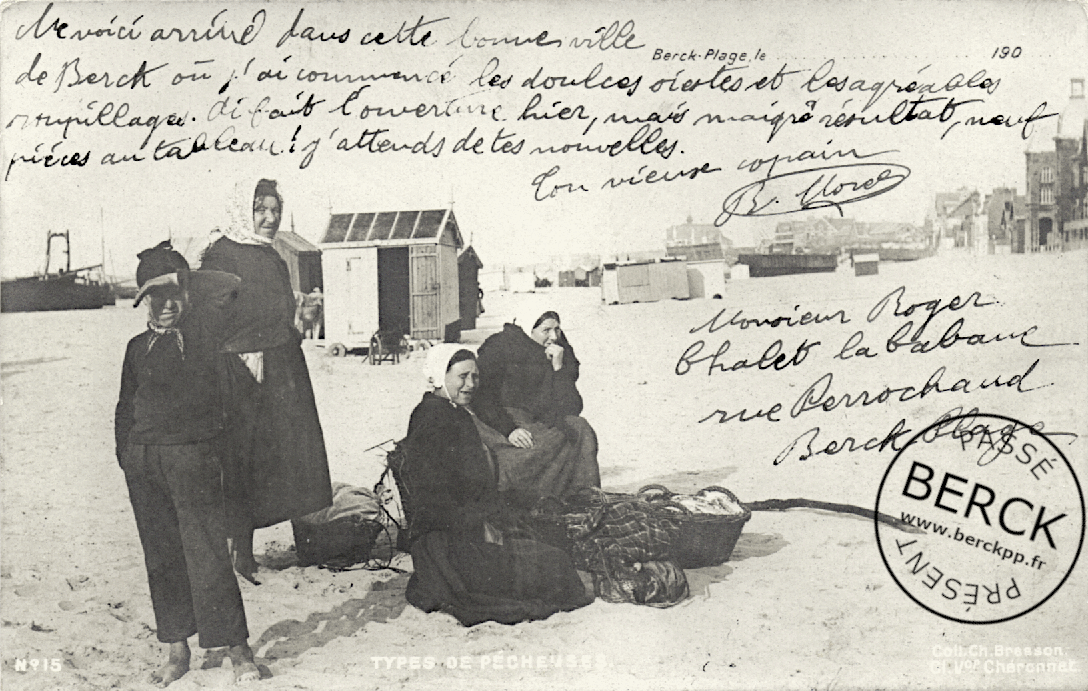 Me voici arrivé dans cette bonne ville
Berck-Plage, le 190
de Berck où j'ai commencé les doulces siestes et les agréables
roupillages. Ai fait l'ouverture hier, mais maigre résultat, neuf
pièces au tableau! j'attends de tes nouvelles.
Ton vieux copain
Morel
Monsieur Roger
Chalet la Cabane
rue Perrochaud
Berck Plage
PASSÉ
BERCK
www.berckpp.fr
PRÉSENT
Nº15
TYPES DE PÉCHEUSES.
Coll. Ch. Bresson.
Cl. Vor Charonnet